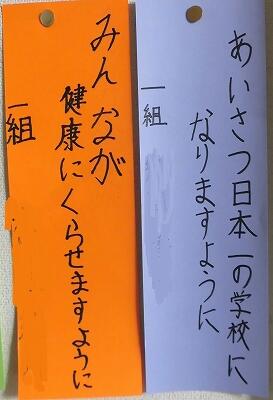 あいさつ日本一の学校に
なりますように
一組
みんなが
健康にくらせますように
一組